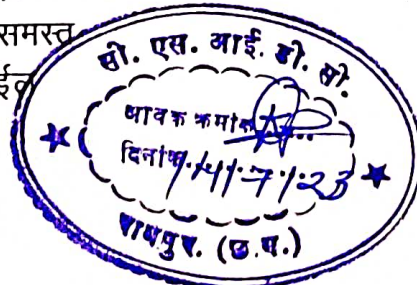 समस्त
सी. एस. आई. डी. सी.
आवक क्रमांक
दिनांक
रायपुर. (छ.ग.)